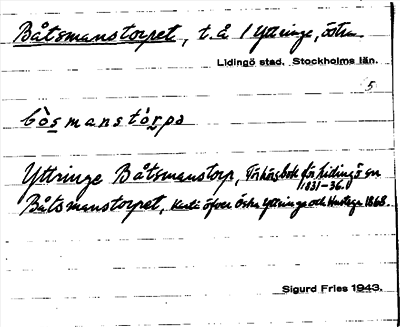 Båtsmanstorpet, t. å 1 Yttringe, östra
Lidingö stad. Stockholms län.
5
bo̊s manstórpə
Yttringe Båtsmanstorp, Förhörsbok för Lidingö sn
1831-36.
Båtsmanstorpet, Karta öfver Östra Yttringe och Hustega 1868.
Sigurd Fries 1943.